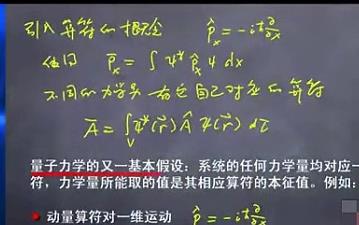 引入算符的概念 $\hat{p}_x = -i\hbar\frac{\partial}{\partial x}$
使得 $\bar{p}_x = \int \psi^* \hat{p}_x \psi \, dx$
不同的力学量有自己对应的算符
$\bar{A} = \int_V \psi^*(\vec{r}) \hat{A} \psi(\vec{r}) \, d\tau$
量子力学的又一基本假设：系统的任何力学量均对应一
符，力学量所能取的值是其相应算符的本征值。例如：
动量算符对一维运动 $\hat{p} = -i\hbar\frac{\partial}{\partial x}$